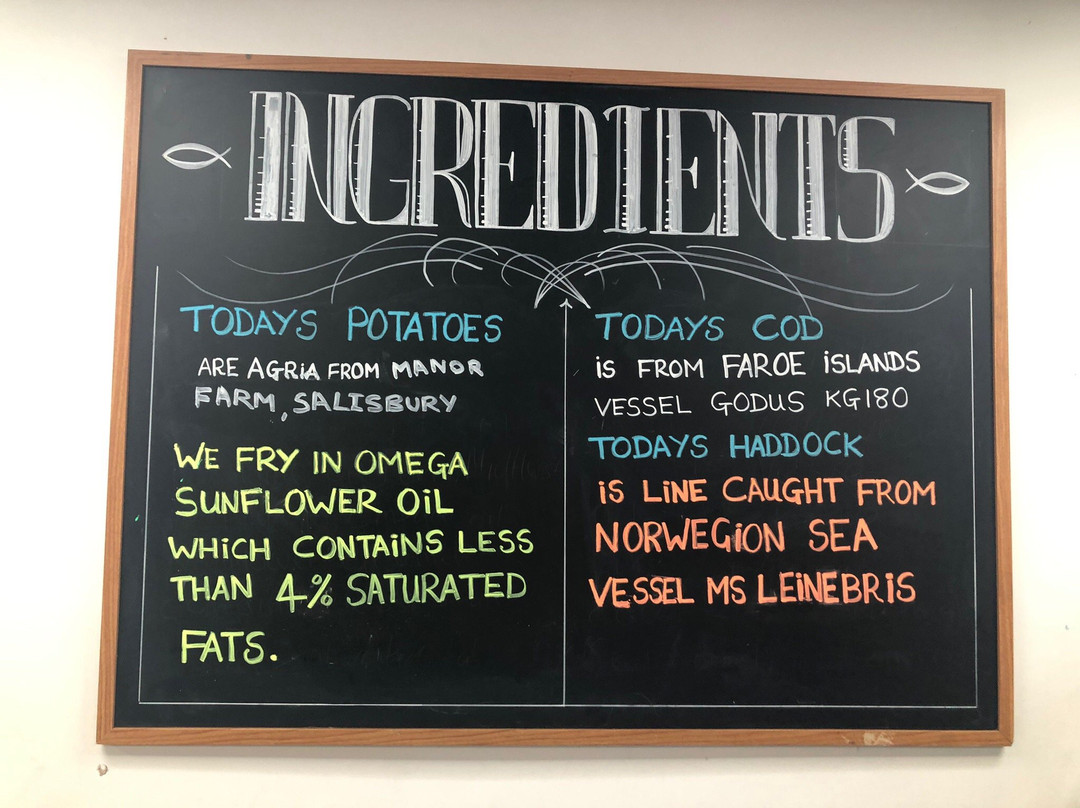 INGREDIENTS
TODAYS POTATOES
ARE AGRiA FROM MANOR
FARM, SALISBURY
WE FRY IN OMEGA
SUNFLOWER OiL
WHiCH CONTAiNS LESS
THAN 4% SATURATED
FATS.
TODAYS COD
iS FROM FAROE iSLANDS
VESSEL GODUS KG180
TODAYS HADDOCK
iS LiNE CAUGHT FROM
NORWEGiON SEA
VESSEL MS LEiNEBRiS